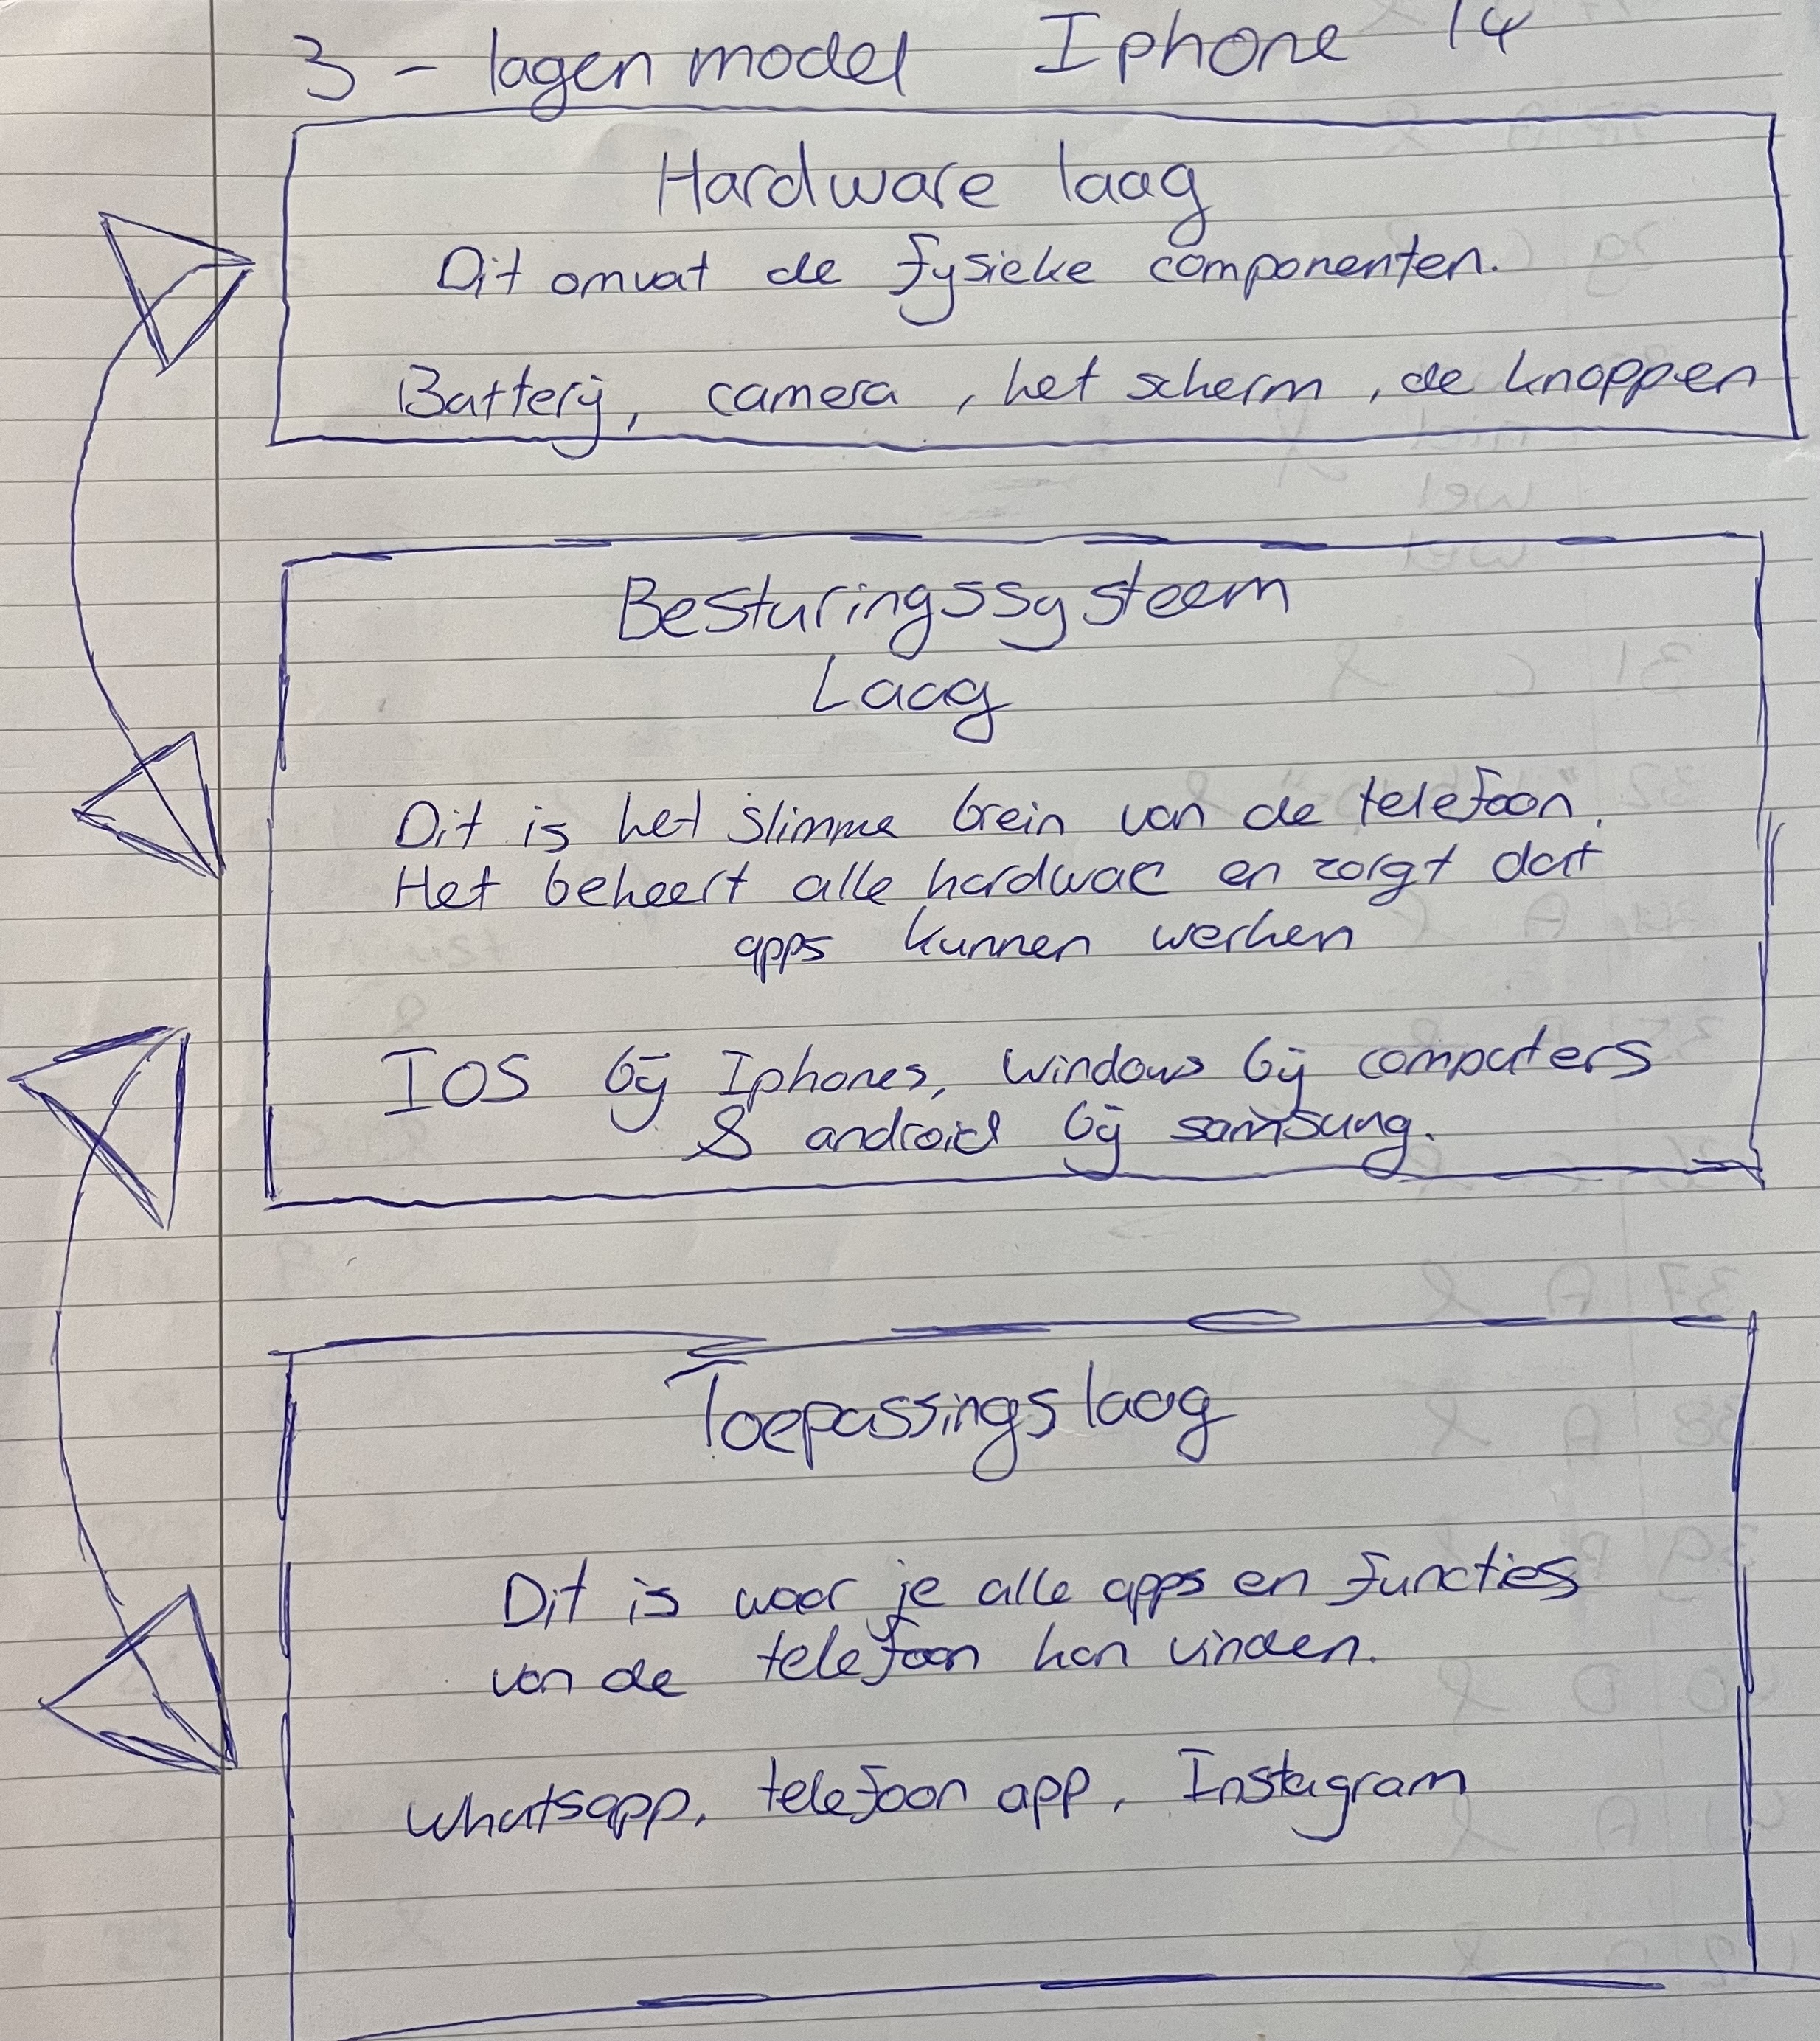 3 - lagen model Iphone 14
Hardware laag
Dit omvat de fysieke componenten.
Batterij, camera, het scherm, de knoppen
Besturingssysteem
Laag
Dit is het slimme brein van de telefoon.
Het beheert alle hardwae en zorgt dat
apps kunnen werken
IOS bij Iphones, windows bij computers
& android bij samsung.
Toepassingslaag
Dit is waar je alle apps en functies
van de telefoon kan vinden.
whatsapp, telefoon app, Instagram